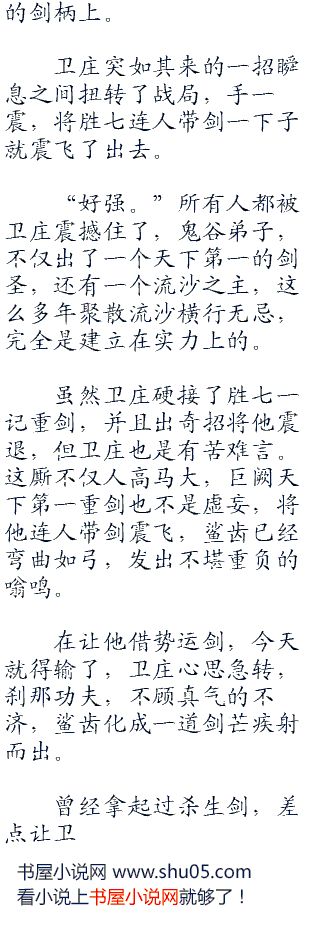 的剑柄上。
卫庄突如其来的一招瞬
息之间扭转了战局，手一
震，将胜七连人带剑一下子
就震飞了出去。
“好强。”所有人都被
卫庄震撼住了，鬼谷弟子，
不仅出了一个天下第一的剑
圣，还有一个流沙之主，这
么多年聚散流沙横行无忌，
完全是建立在实力上的。
虽然卫庄硬接了胜七一
记重剑，并且出奇招将他震
退，但卫庄也是有苦难言。
这厮不仅人高马大，巨阙天
下第一重剑也不是虚妄，将
他连人带剑震飞，鲨齿已经
弯曲如弓，发出不堪重负的
嗡鸣。
在让他借势运剑，今天
就得输了，卫庄心思急转，
刹那功夫，不顾真气的不
济，鲨齿化成一道剑芒疾射
而出。
曾经拿起过杀生剑，差
点让卫
书屋小说网 www.shu05.com
看小说上书屋小说网就够了！